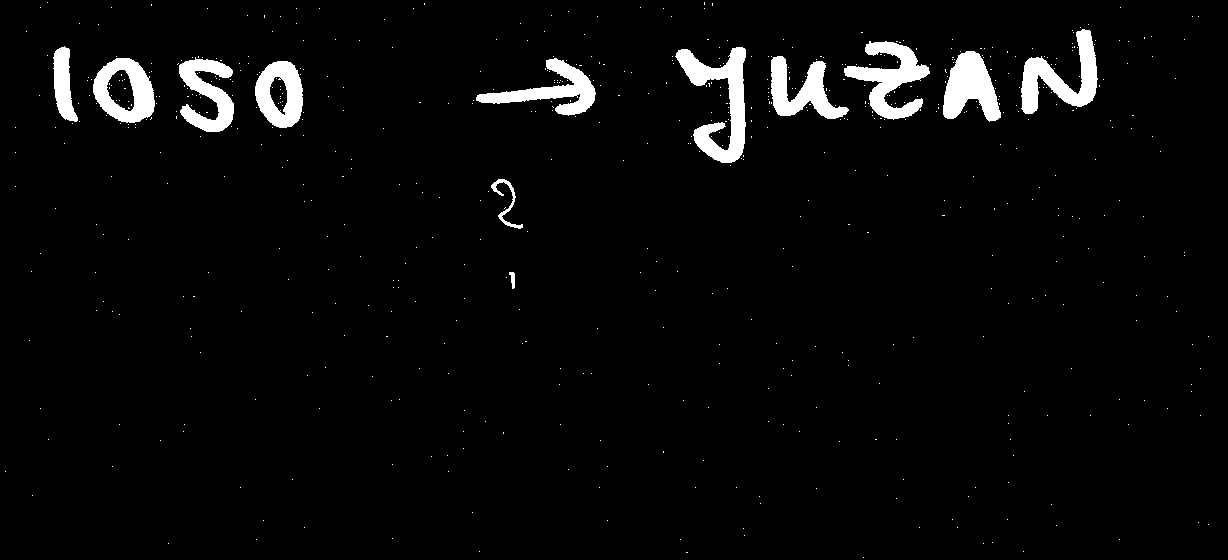 1050 → YUZAN
2
1